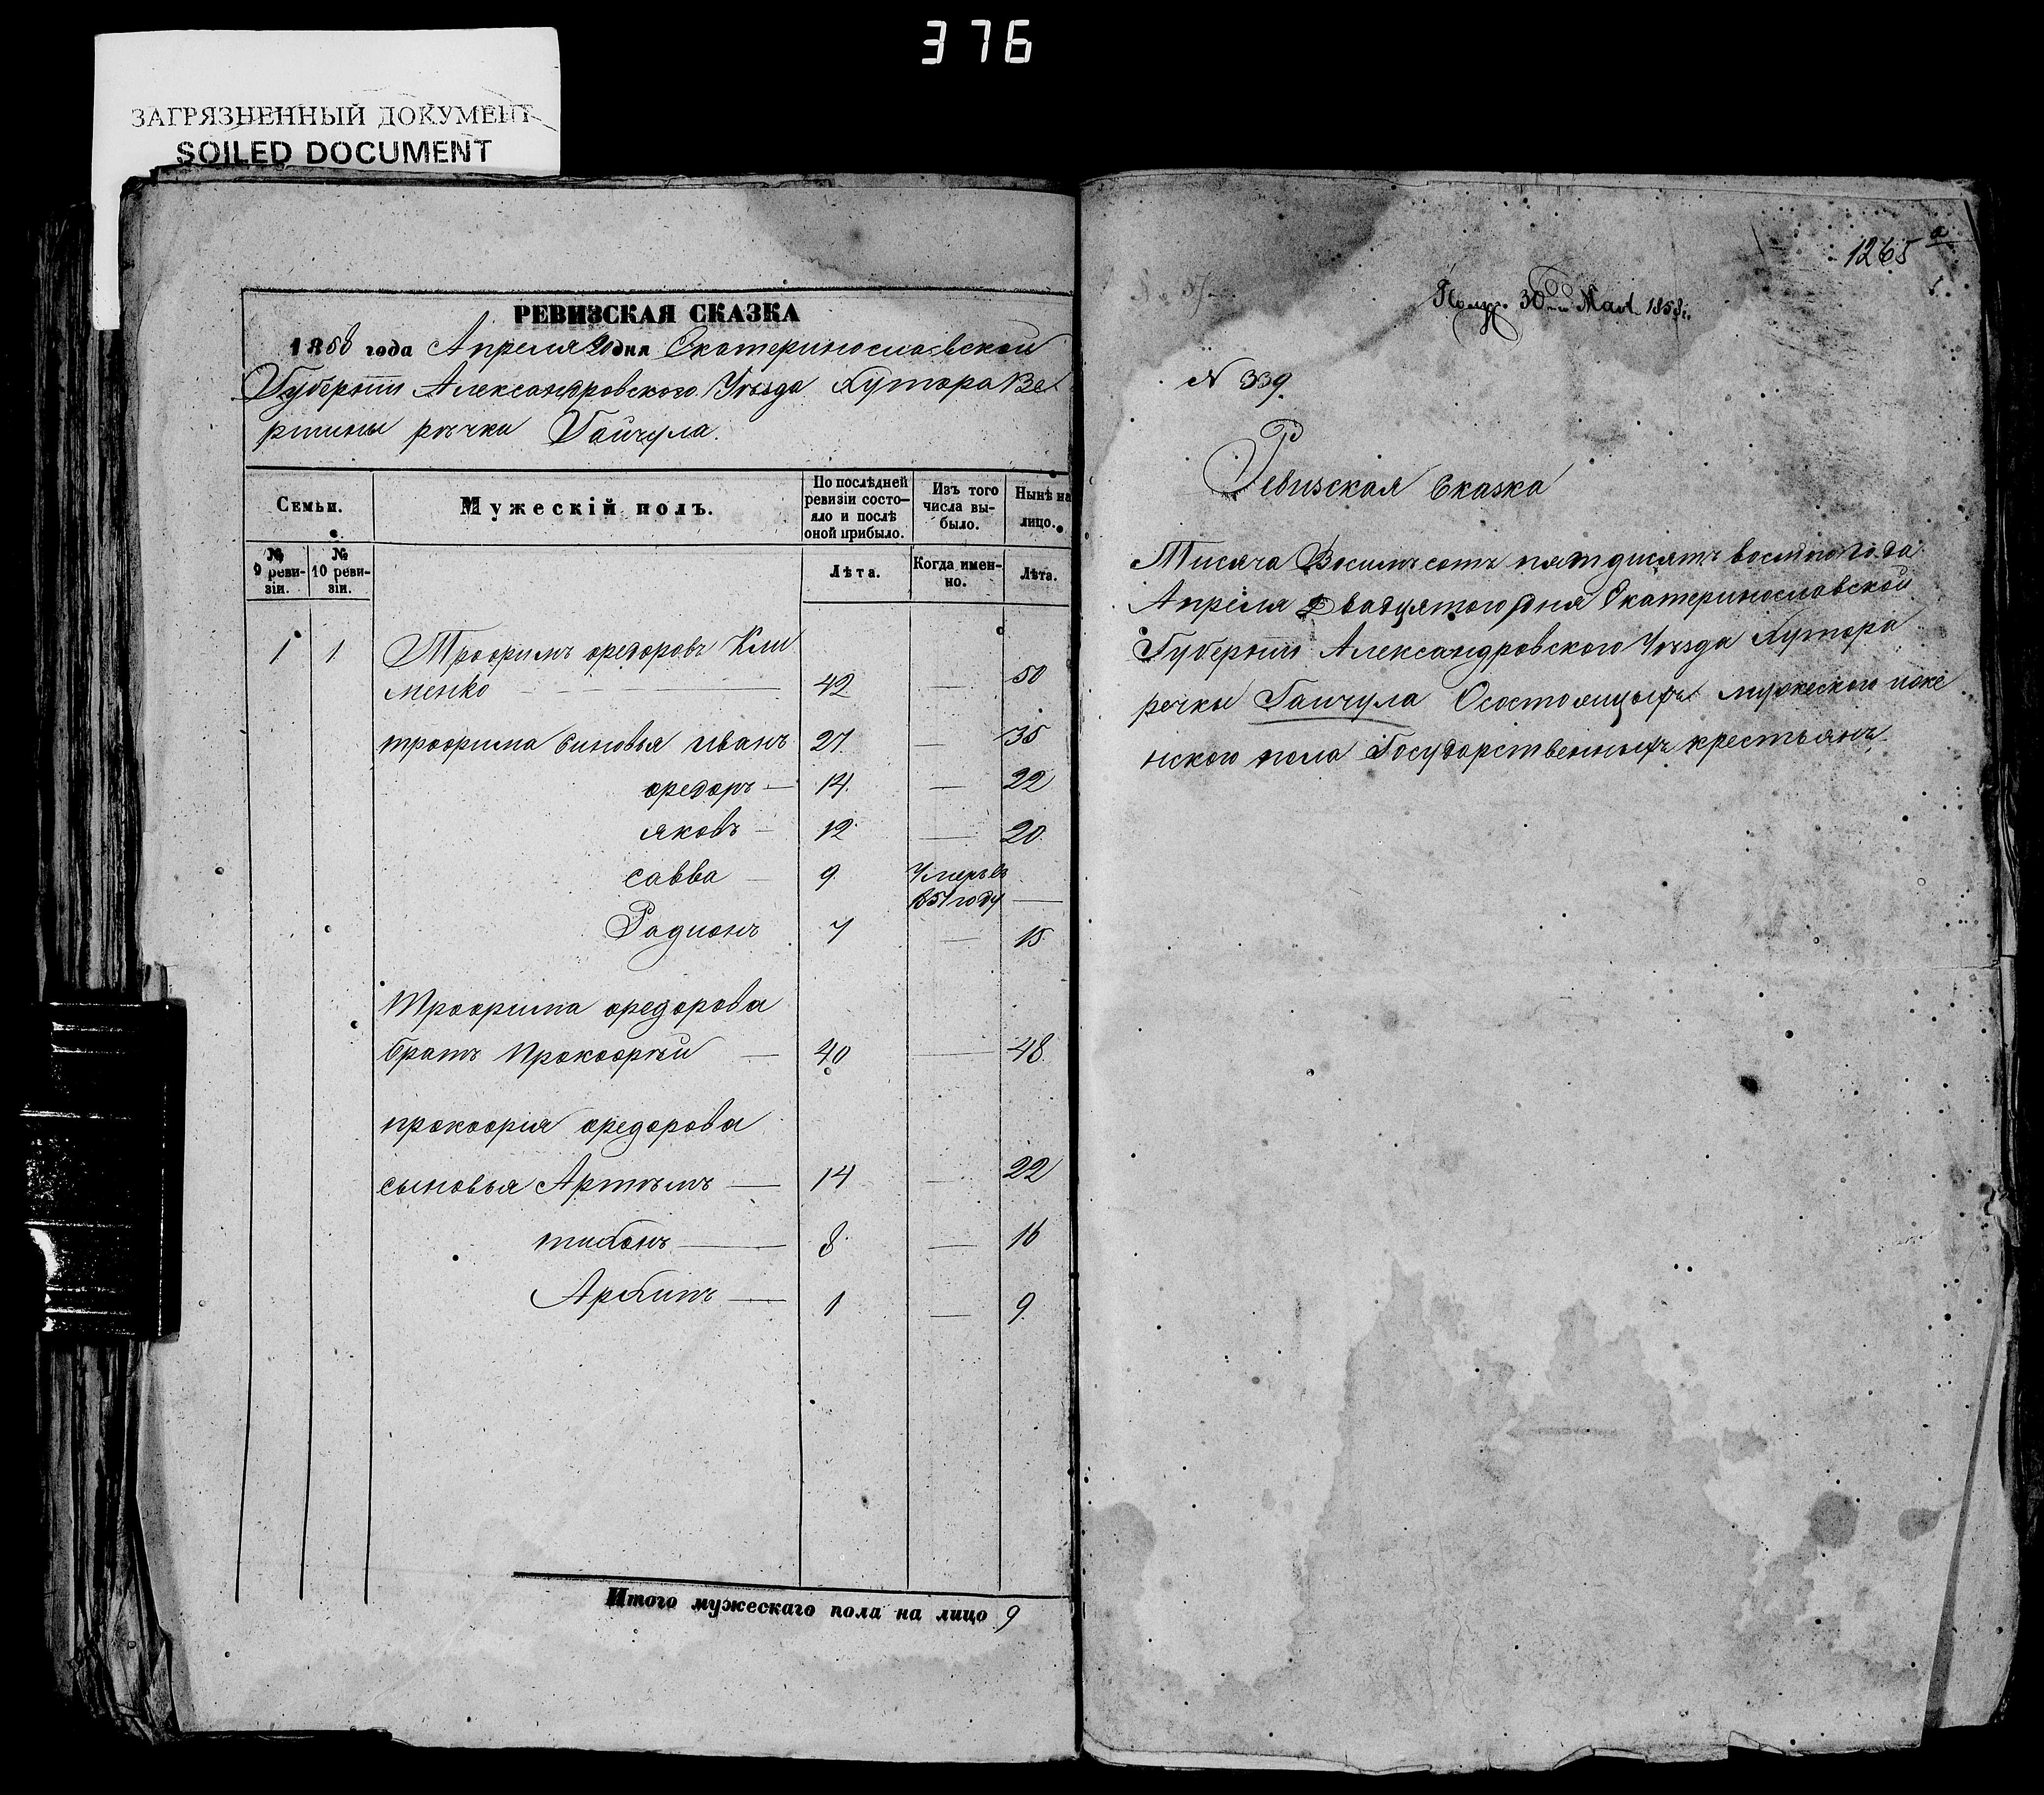 376
ЗАГРЯЗНЕННЫЙ ДОКУМЕНТ
SOILED DOCUMENT
РЕВИЗСКАЯ СКАЗКА
1858 года Апреля 20 дня Екатеринославской
Губернии Александровского Уѣзда Хутора Ве
ршины рѣчки Гайчула.
Семьи.
Мужескій полъ.
По послѣдней ревизіи состо-яло и послѣ оной прибыло.
Изъ того числа вы-было.
Нынѣ на лицо.
№ 9 реви-зіи.
№ 10 реви-зіи.
Лѣта.
Когда имен-но.
Лѣта.
1 1 Трофимъ федоровъ Кли
менко 42 — 50
трофима Синовья иванъ 27. — 35
федоръ — 14. — 22
яковъ — 12. — 20.
савва — 9. Умеръ въ
1857 году —
Радионъ 7 — 15.
Трофима федорова
братъ Прокофѣй — 40 — 48.
прокофія федорова
сыновья Артѣмъ — 14 — 22
тихонъ — 8. — 16
Архипъ — 1 — 9.
Итого мужескаго пола на лицо 9
1265 а
30 Мая 1858г.
N 339.
Ревизская Сказка
Тисяча Восимъсотъ пятдисятъ восмого года
Апреля Двадцятого дня Екатеринославской
Губерніи Александровского Уѣзда Хутора
речки Гайчула Осостоящыхъ мужеского иже
нского пола Государственныхъ крестьянъ.